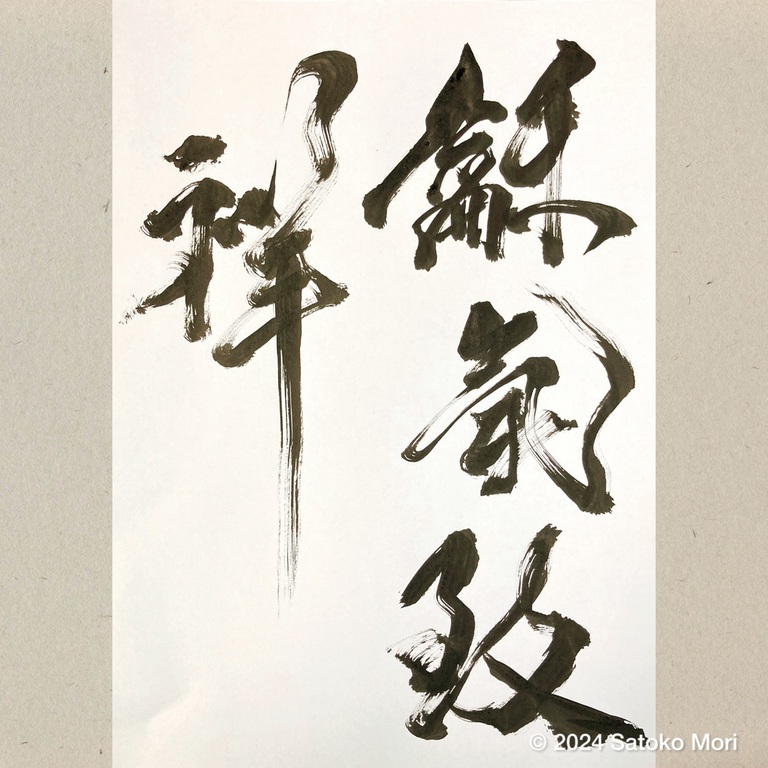 龢氣致
祥
© 2024 Satoko Mori